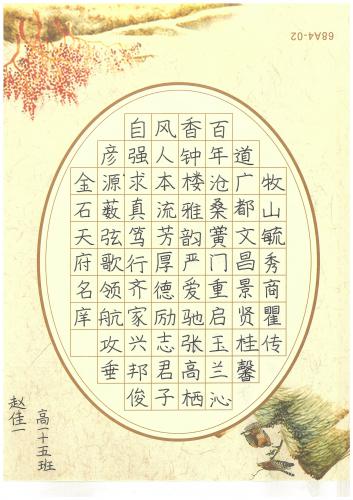 牧山毓秀商瞿传
道广都文昌景贤桂馨
百年沧桑黉门重启玉兰沁
香钟楼雅韵严爱驰张高栖
风人本流芳厚德励志君子
自强求真笃行齐家兴邦俊
彦源薮弦歌领航攻垂
金石天府名庠
高一十五班
赵佳一
68A4-02